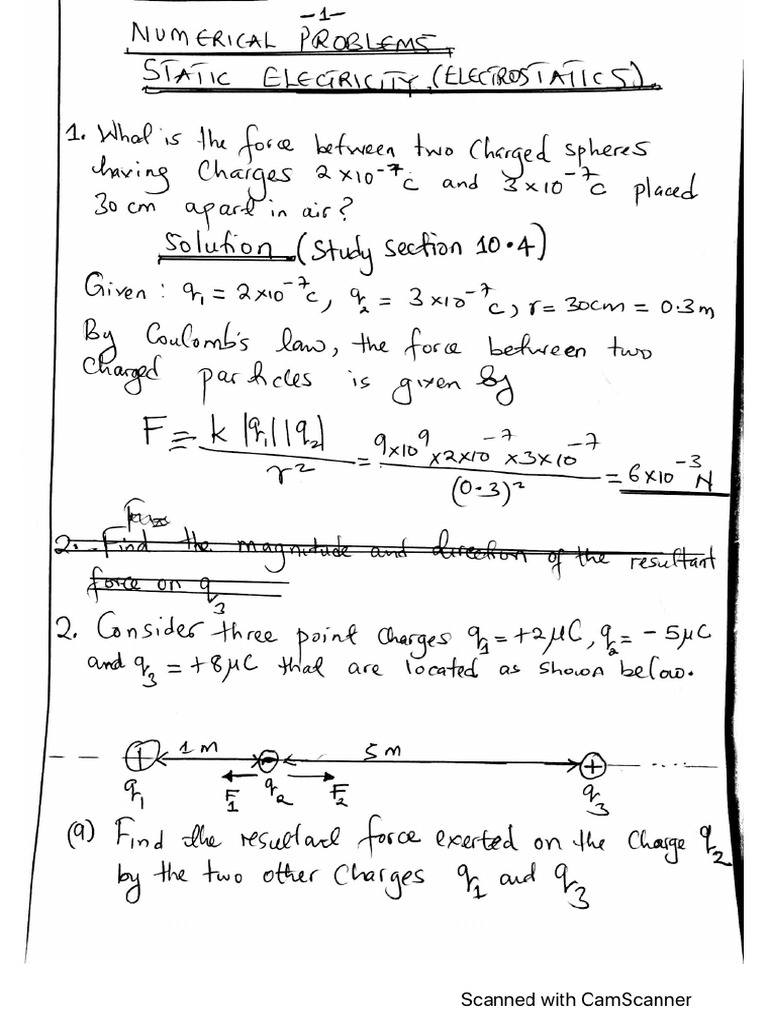 -1-
NUMERICAL PROBLEMS
STATIC ELECTRICITY, (ELECTROSTATICS).
1. What is the force between two Charged spheres
having Charges 2×10⁻⁷C and 3×10⁻⁷C placed
30 cm apart in air?
Solution (Study section 10.4)
Given : q₁ = 2×10⁻⁷C, q₂ = 3×10⁻⁷C, r = 30cm = 0.3m
By Coulomb's law, the force between two
Charged particles is given by
F = k |q₁||q₂| / r² = 9×10⁹ × 2×10⁻⁷ × 3×10⁻⁷ / (0.3)² = 6×10⁻³ N
2. Find the magnitude and direction of the resultant
force on q₃
2. Consider three point charges q₁ = +2μC, q₂ = -5μC
and q₃ = +8μC that are located as shown below.
+ 1 m - 5 m +
q₁ F₁ q₂ F₂ q₃
(a) Find the resultant force exerted on the charge q₂
by the two other Charges q₁ and q₃
Scanned with CamScanner